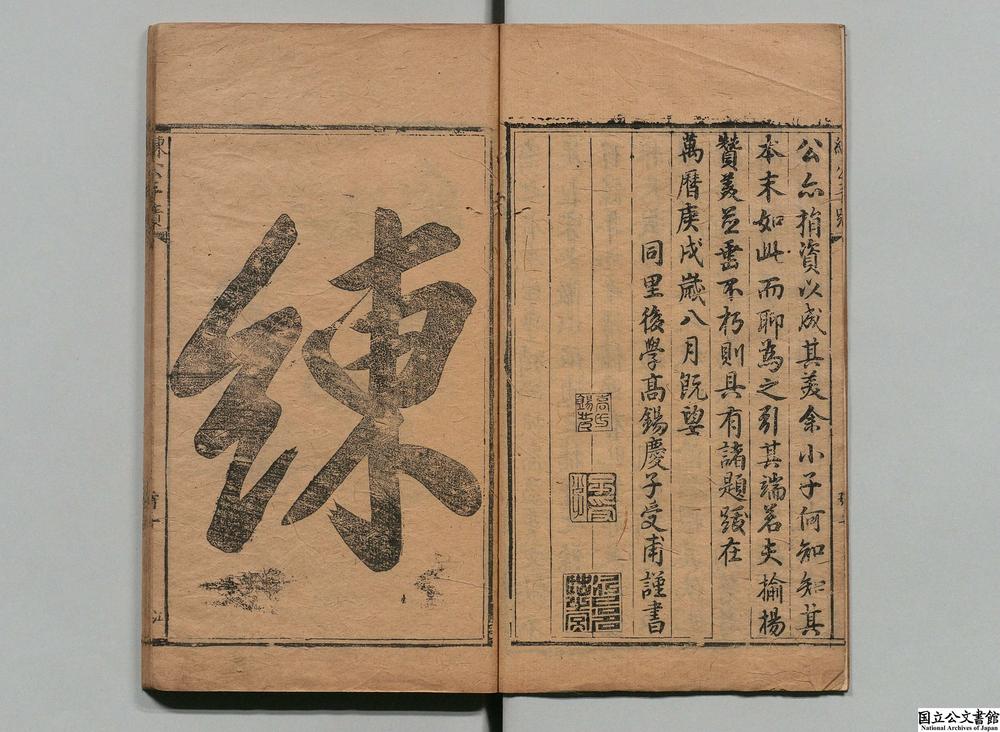 公亦捐資以成其美余小子何知知其
本末如此而聊為之引其端若夫揄揚
贊美並垂不朽則具有諸題跋在
萬曆庚戌歲八月既望
同里後學高錫慶子受甫謹書
練
国立公文書館
National Archives of Japan